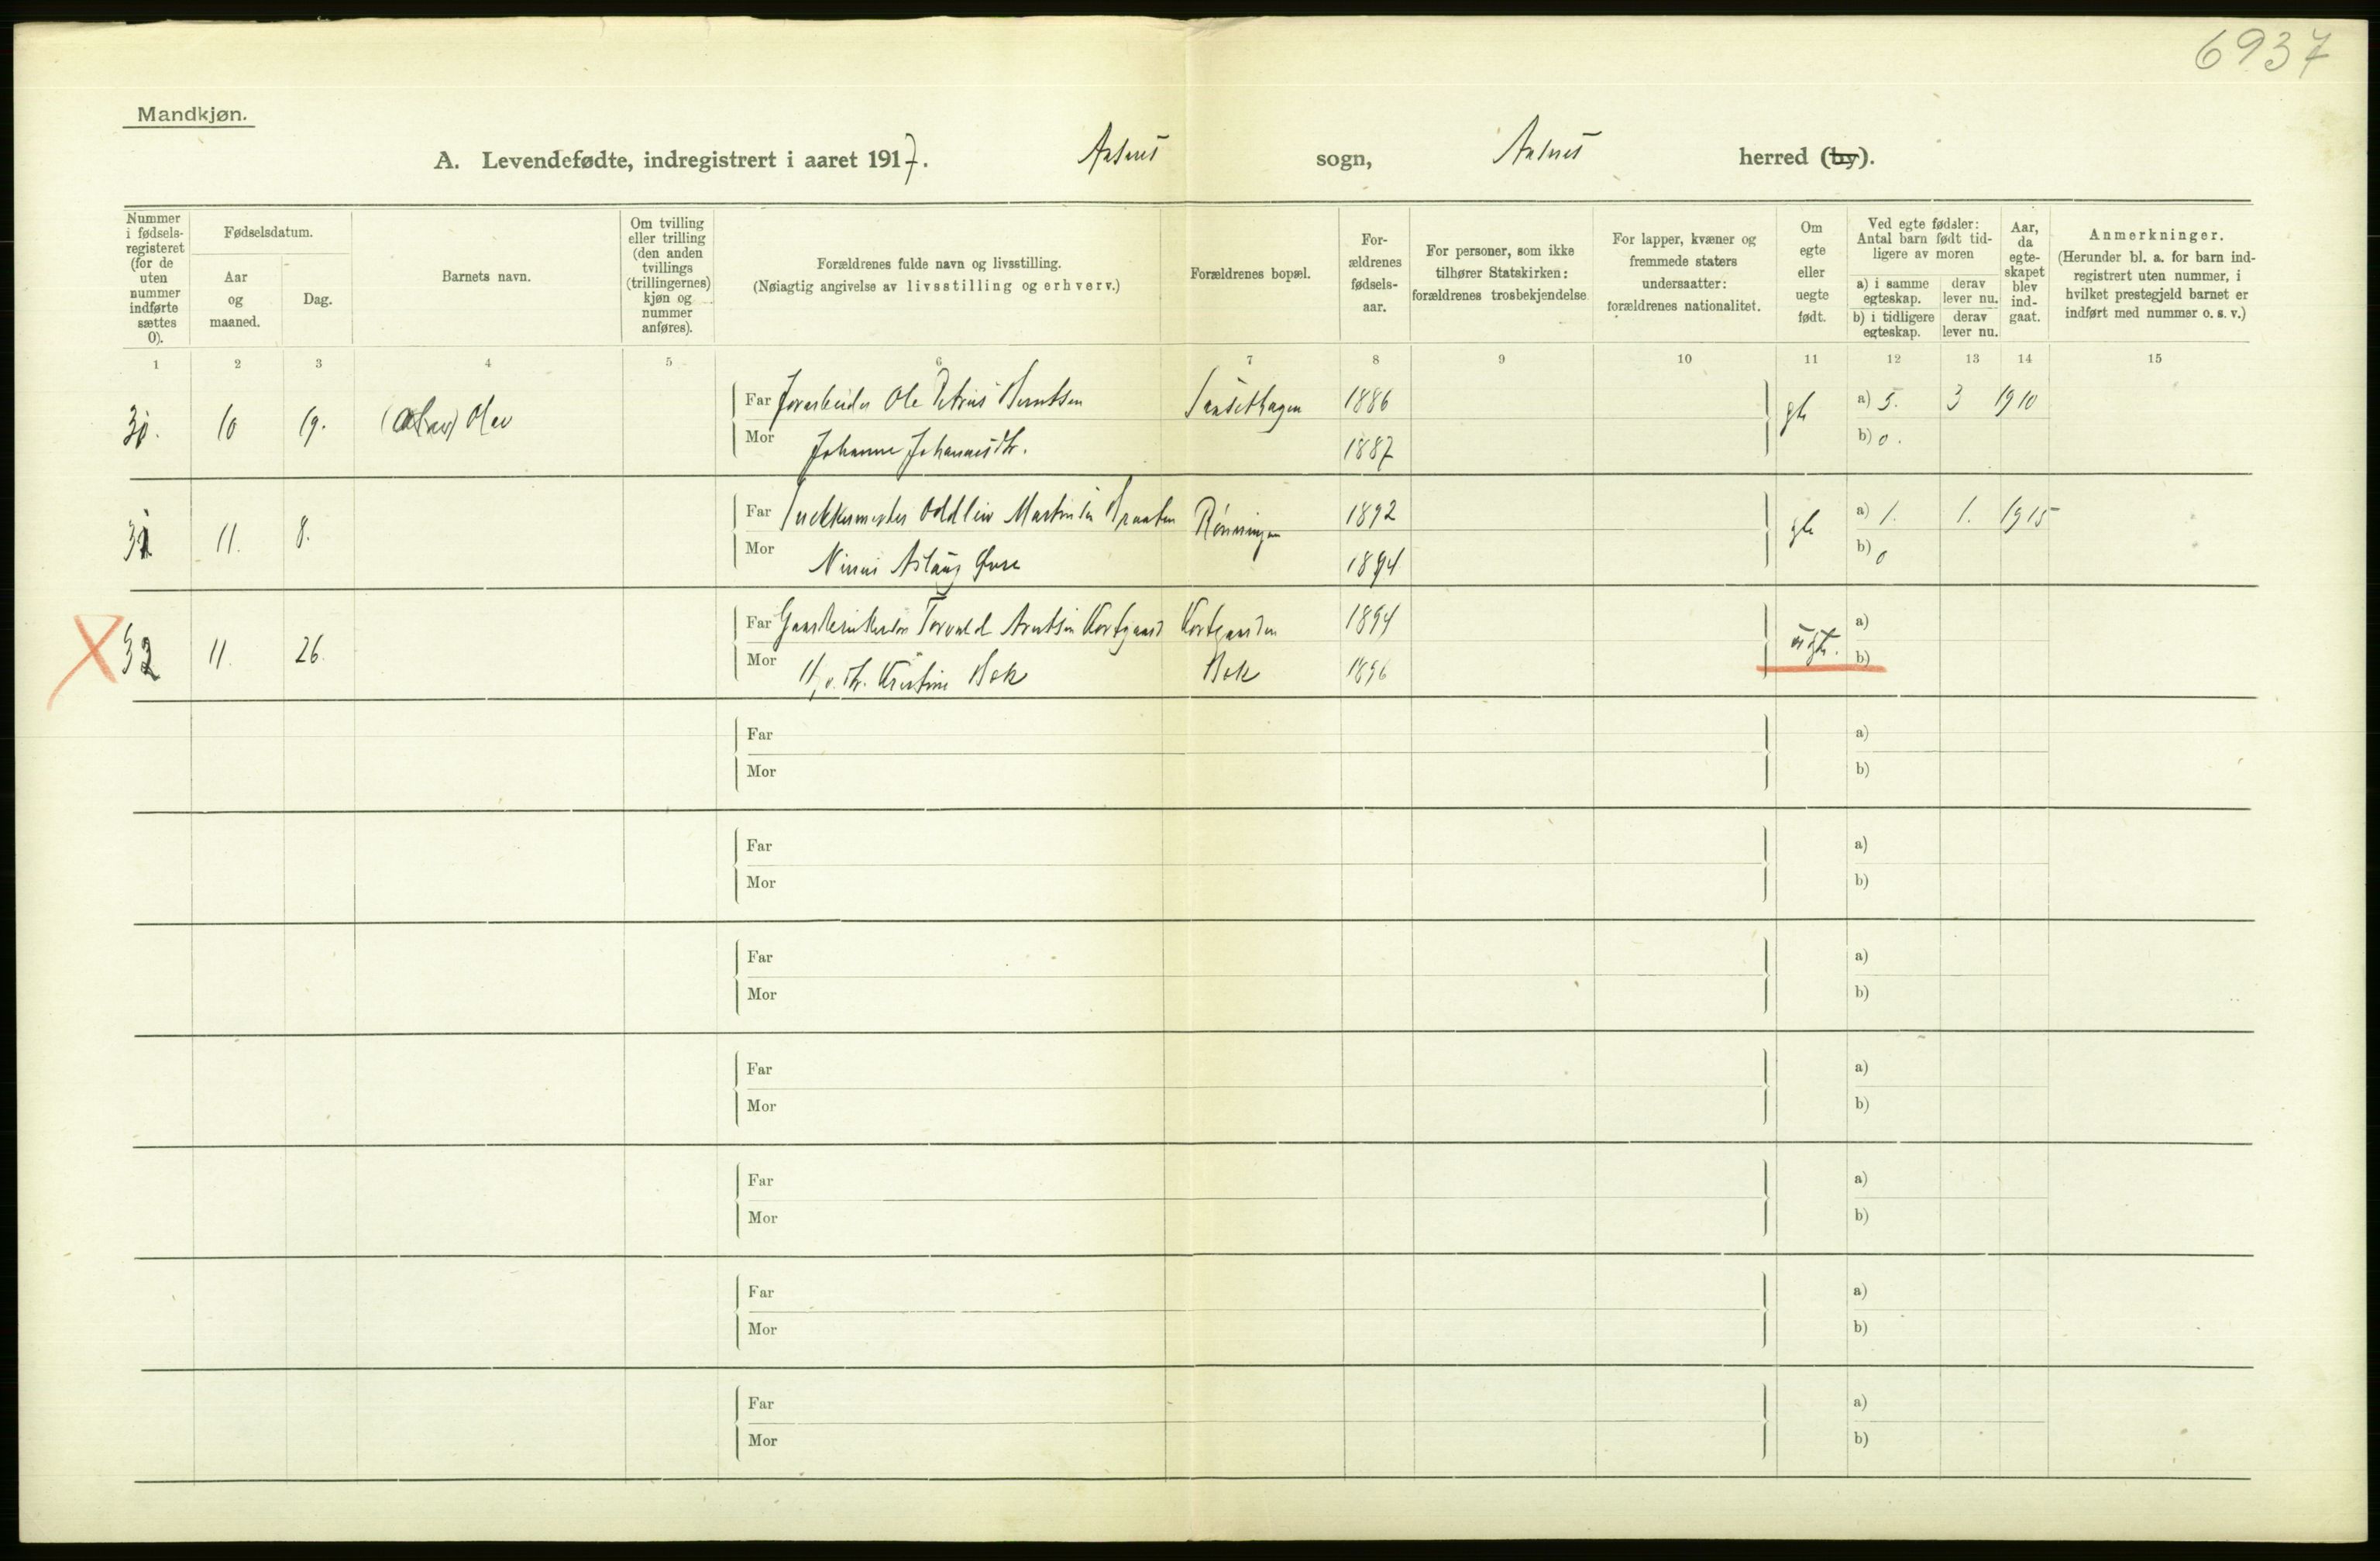 6937
Mandkjøn.
A. Levendefødte, indregistrert i aaret 1917. Aasnes sogn, Aasnes herred (by).
Nummer i fødsels-registeret (for de uten nummer indførte sættes 0).
Fødselsdatum.
Aar og maaned.
Dag.
Barnets navn.
Om tvilling eller trilling (den anden tvillings (trillingernes) kjøn og nummer anføres).
Forældrenes fulde navn og livsstilling.
(Nøiagtig angivelse av livsstilling og erhverv.)
Forældrenes bopæl.
For-ældrenes fødsels-aar.
For personer, som ikke tilhører Statskirken: forældrenes trosbekjendelse
For lapper, kvæner og fremmede staters undersaatter: forældrenes nationalitet.
Om egte eller uegte født.
Ved egte fødsler: Antal barn født tid-ligere av moren
a) i samme egteskap.
derav lever nu.
b) i tidligere egteskap.
derav lever nu.
Aar, da egte-skapet blev ind-gaat.
Anmerkninger.
(Herunder bl. a. for barn ind-registrert uten nummer, i hvilket prestegjeld barnet er indført med nummer o. s. v.)
1 2 3 4 5 6 7 8 9 10 11 12 13 14 15
30. 10 19. Olav
Far Jorarbeider Ole Petrus Berntsen 1886 a) 5. 3 1910
Mor Johanne Johannesdtr. 1887 b) 0.
31 11. 8.
Far Oddleiv Martinsen Braaten Rønningen 1892 gte a) 1. 1. 1915
Mor Aslaug 1894 b) 0
X 32 11. 26.
Far Torvald Arntsen Kortgaard Kortgaarden 1894 uegte. a)
Mor Kristine Bek Bek 1896 b)
Far a)
Mor b)
Far a)
Mor b)
Far a)
Mor b)
Far a)
Mor b)
Far a)
Mor b)
Far a)
Mor b)
Far a)
Mor b)